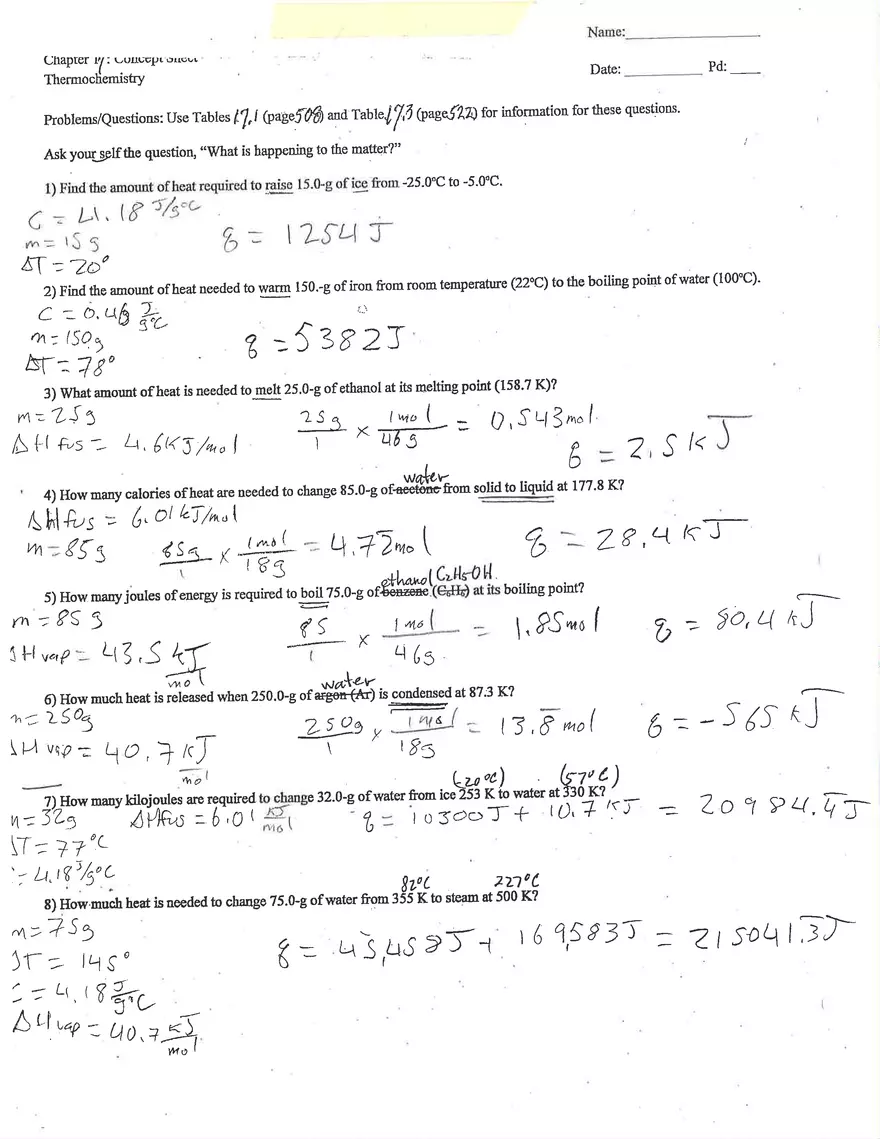 Name:
Chapter 17: Concept Sheet
Thermochemistry
Date: Pd:
Problems/Questions: Use Tables 17.1 (page 508) and Table 17.3 (page 522) for information for these questions.
Ask your self the question, “What is happening to the matter?”
1) Find the amount of heat required to raise 15.0-g of ice from -25.0°C to -5.0°C.
C = 4.18 J/g°C
m = 15 g
q = 1254 J
ΔT = 20°
2) Find the amount of heat needed to warm 150.-g of iron from room temperature (22°C) to the boiling point of water (100°C).
C = 0.46 J/g°C
m = 150g
q = 5382J
ΔT = 78°
3) What amount of heat is needed to melt 25.0-g of ethanol at its melting point (158.7 K)?
m = 25g
25g/1 × 1 mol/46g = 0.543 mol
ΔH fus = 4.6KJ/mol
q = 2.5 kJ
water
4) How many calories of heat are needed to change 85.0-g of acetone from solid to liquid at 177.8 K?
ΔHfus = 6.01 kJ/mol
m = 85g 85g/1 × 1 mol/18g = 4.72 mol q = 28.4 kJ
ethanol C2H5OH
5) How many joules of energy is required to boil 75.0-g of benzene (C6H6) at its boiling point?
m = 85 g 85/1 × 1 mol/46g = 1.85 mol q = 80.4 kJ
ΔH vap = 43.5 kJ/mol
water
6) How much heat is released when 250.0-g of argon (Ar) is condensed at 87.3 K?
m = 250g
250g/1 × 1 mol/18g = 13.8 mol q = -565 kJ
ΔH vap = 40.7 kJ/mol
(-20°C) (57°C)
7) How many kilojoules are required to change 32.0-g of water from ice 253 K to water at 330 K?
m = 32g ΔHfus = 6.01 KJ/mol q = 10300J + 10.7 KJ = 20984.4J
ΔT = 77°C
C = 4.18 J/g°C
82°C 227°C
8) How much heat is needed to change 75.0-g of water from 355 K to steam at 500 K?
m = 75g
q = 45,458J + 169,583J = 215041.3J
ΔT = 145°
C = 4.18 J/g°C
ΔH vap = 40.7 KJ/mol